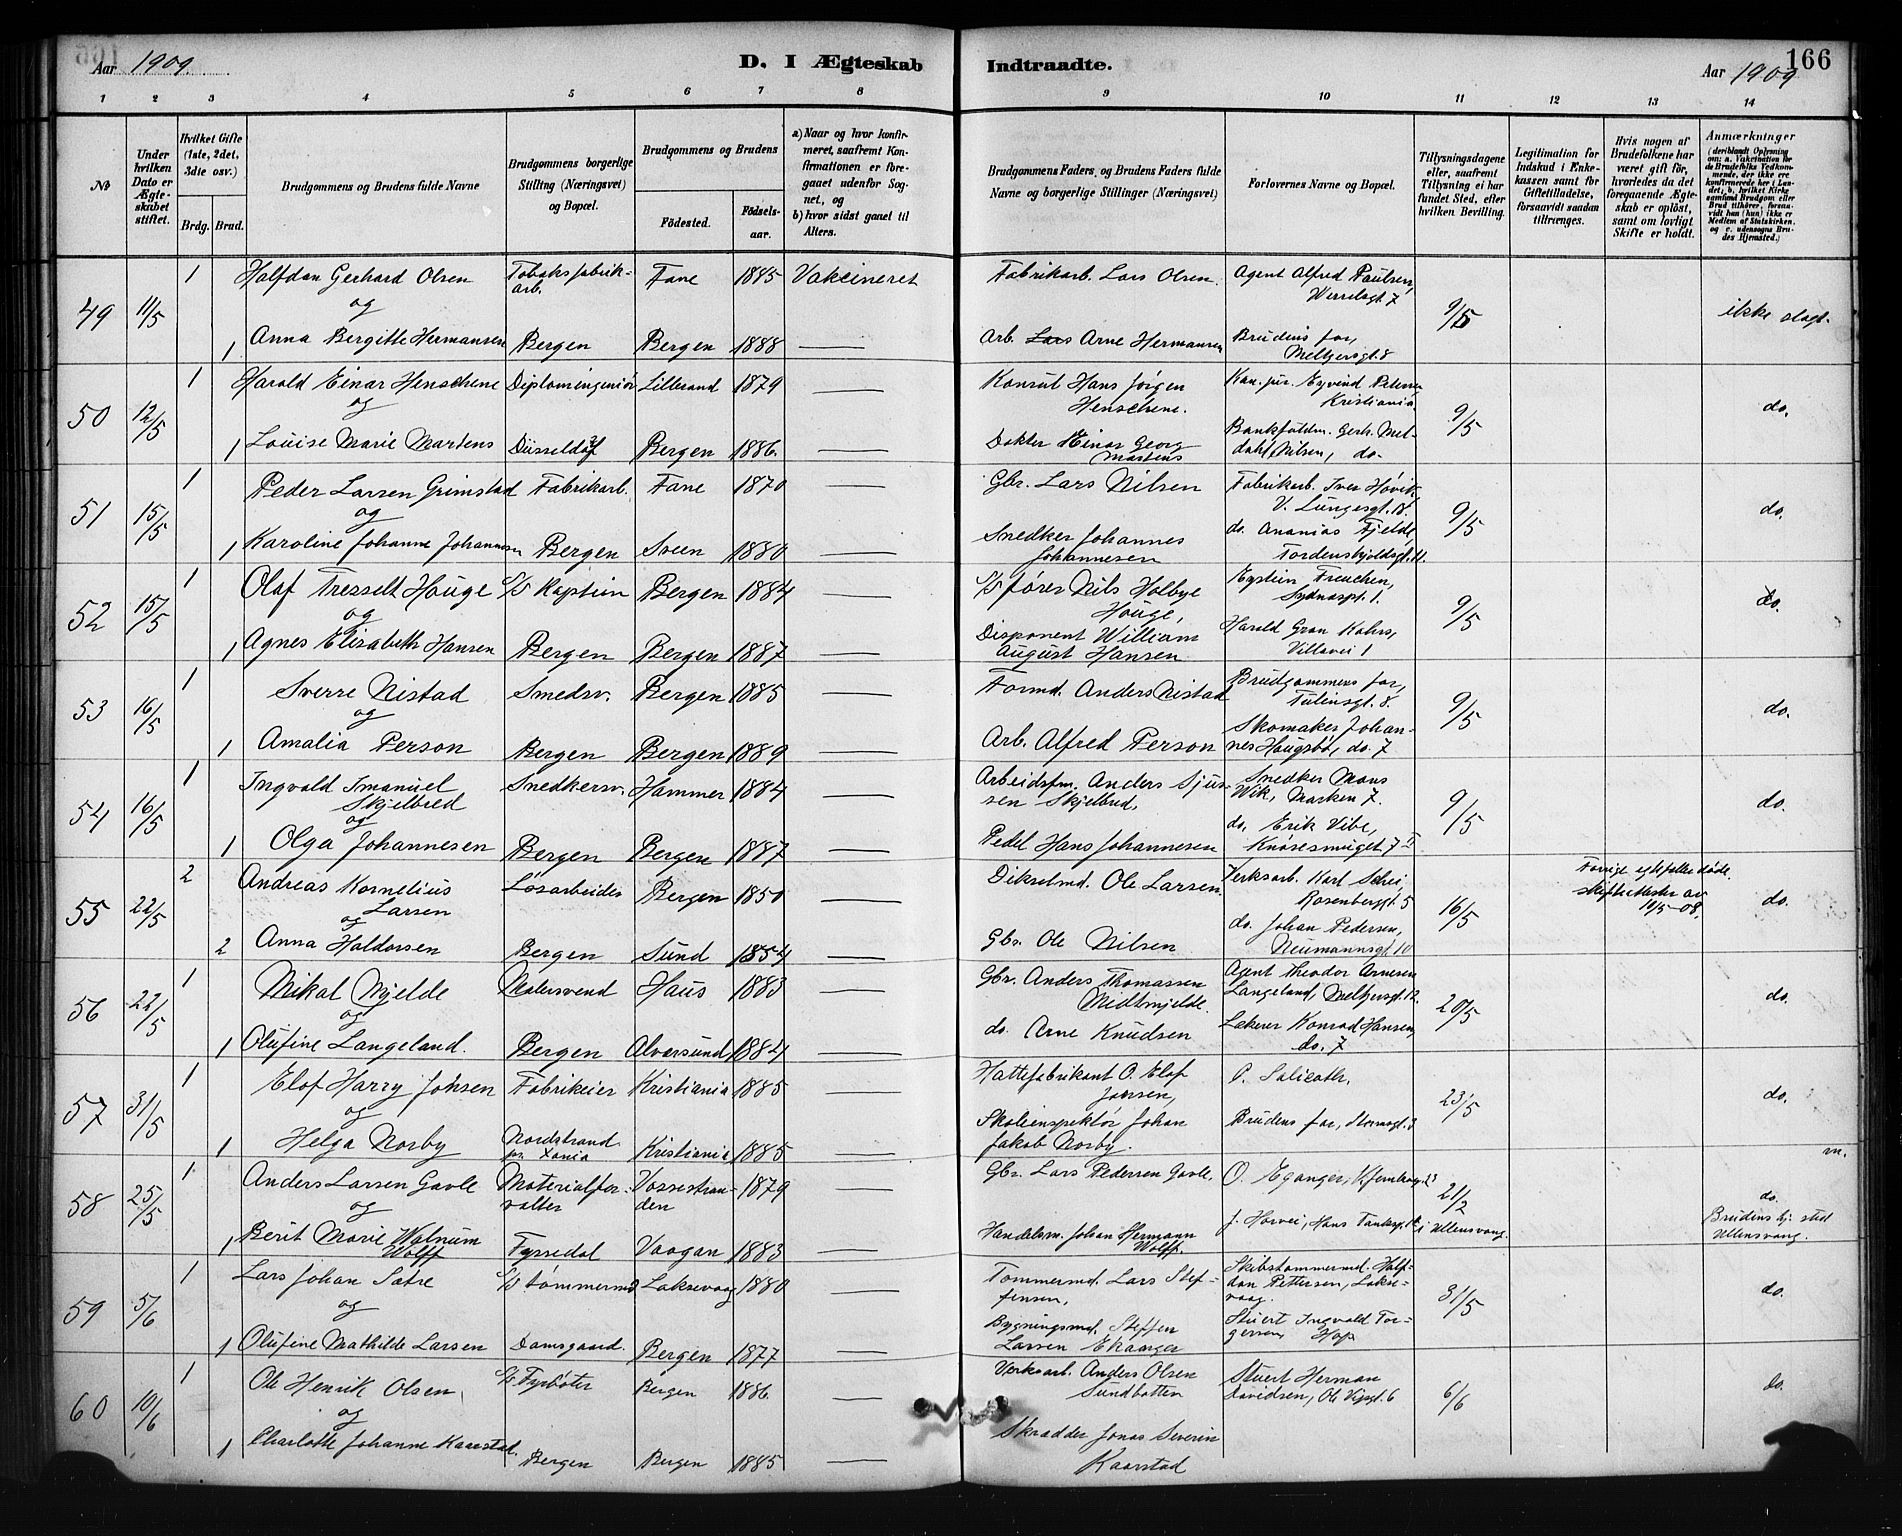 Aar 1909.
D. I Ægteskab
Indtraadte.
166
Aar 1909
1 2 3 4 5 6 7 8 9 10 11 12 13 14
No
Under hvilken Dato er Ægteskabet stiftet.
Hvilket Gifte (1ste, 2det, 3dte osv.)
Brdg. Brud.
Brudgommens og Brudens fulde Navne
Brudgommens borgerlige Stilling (Næringsvei) og Bopæl.
Brudgommens og Brudens
Fødested.
Fødselsaar.
a) Naar og hvor konfirmeret, saafremt Konfirmationen er foregaaet udenfor Sognet, og
b) hvor sidst gaaet til Alters.
Brudgommens Faders, og Brudens Faders fulde Navne og borgerlige Stillinger (Næringsvei)
Forlovernes Navne og Bopæl.
Tillysningsdagene eller, saafremt Tillysning ei har fundet Sted, efter hvilken Bevilling.
Legitimation for Indskud i Enkekassen samt for Giftetilladelse, forsaavidt saadan tiltrænges.
Hvis nogen af Brudefolkene har været gift før, hvorledes da det foregaaende Ægteskab er opløst, samt om lovligt Skifte er holdt.
Anmærkninger
(deriblandt Oplysning om: a. Vakcination for de Brudefolks Vedkommende, der ikke ere konfirmerede her i Landet; b. hvilket Kirkesamfund Brudgom eller Brud tilhører, forsaavidt han (hun) ikke er Medlem af Statskirken, og c. udensogns Brudes Hjemsted.)
49 11/5 1 Halfdan Gerhard Olsen Tobaksfabrikarb. Fane 1885 Vakcineret Fabrikarb. Lars Olsen. Agent Alfred Paulsen, 7 9/5 ikke slægt.
og
1 Anna Bergitte Hermansen Bergen Bergen 1888 Arb. Lars Arne Hermansen Brudens far, Meltzersgt. 8
50 12/5 1 Harald Einar Henschene Diplomingeniør 1879 Konsul Hans Jørgen Henschene. Kan. jur. Eyvind Petersen Kristiania 9/5 do.
og
1 Louise Marie Martens Düsseldorf Bergen 1886. Doktor Einar Georg Martens Bankfuldm. Gerh. Meldahl Nilsen, do.
51 15/5 1 Peder Larsen Grimstad Fabrikarb. Fane 1870 Gbr. Lars Nilsen Fabrikarb. Iver Høvik, V. Lungesgt. 18. 9/5 do.
og
1 Karoline Johanne Johannesen Bergen Sveen 1880 Snedker Johannes Johannesen do. Ananias Fjelde, Tordenskjoldsgt. 11.
52 15/5 1 Olaf Tresselt Houge S/S Kaptein Bergen 1884 S/S fører Nils Holbye Houge, Eystein Freuchen, Sydnespl. 1. 9/5 do.
og
1 Agnes Elisabeth Hansen Bergen Bergen 1887 Disponent William August Hansen Harald Gran Kahrs, Villavei 1
53 16/5 1 Sverre Nistad Smedsv. Bergen 1885 Formd. Anders Nistad Brudgommens far, Tulinsgt. 8. 9/5 do.
og
1 Amalia Person Bergen Bergen 1889 Arb. Alfred Person Skomaker Johannes Haugsbø, do. 7
54 16/5 1 Ingvald Imanuel Skjelbred Snedkersv. Hammer 1884 Arbeidsfm. Anders Sjursen Skjelbred, Snedker Mons Wik, Marken 7. 9/5 do.
og
1 Olga Johannesen Bergen Bergen 1887 Pedel Hans Johannesen do. Erik Vibe, Knøsesmuget 7 I
55 22/5 2 Andreas Kornelius Larsen Løsarbeider Bergen 1850 Dikselmd. Ole Larsen. Verksarb. Karl Schei, Rosenberggt. 5 16/5 Forrige egtefæller døde. Skifteattester av 10/5-08. do.
og
2 Anna Haldorsen Bergen Sund 1854 Gbr. Ole Nilsen do. Johan Pedersen, Neumannsgt. 10
56 22/5 1 Mikal Mjelde Malersvend Haus 1883 Gbr. Anders Thomassen Midtmjelde. Agent Theodor Arnesen Langeland, Meltzersgt. 12. 20/5 do.
og
1 Olufine Langeland. Bergen Alversund 1884 do. Arne Knudsen Lækerer Konrad Hansen, do. 7
57 31/5 1 Elof Harry Johsen Fabrikeier Kristiania 1885 Hattefabrikant O. Elof Jansen, P. Salicath, 23/5 do.
og
1 Helga Norby Nordstrand pr. Xania Kristiania 1885 Skoleinspektør Johan Jakob Norby. Brudens far,
58 25/5 1 Anders Larsen Gavle Materialforvalter Vossestranden 1879 Gbr. Lars Pedersen Gavle. O. Eganger, 21/2 i Ullensvang. do. Brudens hj. sted Ullensvang.
og
1 Berit Marie Walnum Wolff Tyssedal Vaagan 1883 Handelsm. Johan Hermann Wolff. J. Horvei, Hans Tanksgt.
59 5/6 1 Lars Johan Sætre S/S tømmermd Laksevaag 1880 Tømmermd. Lars Steffensen, Skibstømmermd. Halfdan Pettersen, Laksevaag. 31/5 do.
og
1 Olufine Mathilde Larsen Damsgaard. Bergen 1877 Bygningsmd. Steffen Larsen Ekanger Stuert Ingvald Torgersen, Hop
60 10/6 1 Ole Henrik Olsen S/S Fyrbøter Bergen 1886. Verksarb. Anders Olsen Sundbotten Stuert Herman Davidsen, Ole Vigsgt. 6 6/6 do.
og
1 Charlotte Johanne Kaarstad. Bergen Bergen 1885 Skrædder Jonas Severin Kaarstad